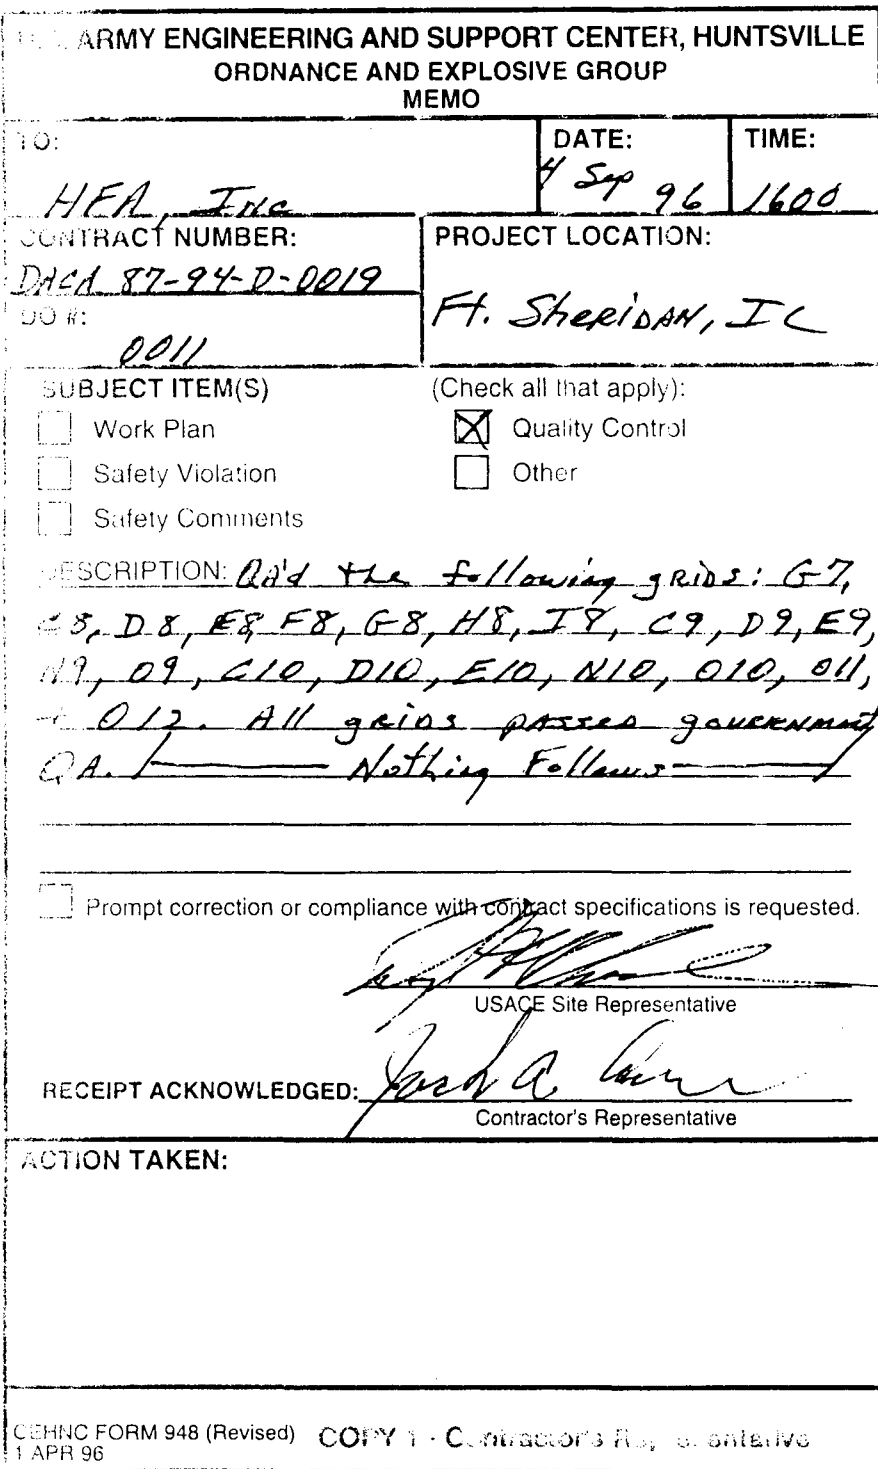 U.S. ARMY ENGINEERING AND SUPPORT CENTER, HUNTSVILLE
ORDNANCE AND EXPLOSIVE GROUP
MEMO
TO:
HFA, Inc
DATE:
4 Sep 96
TIME:
1600
CONTRACT NUMBER:
DACA 87-94-D-0019
PROJECT LOCATION:
Ft. Sheridan, IL
DO #:
0011
SUBJECT ITEM(S) (Check all that apply):
Work Plan
Quality Control
Safety Violation
Other
Safety Comments
DESCRIPTION: QA'd the following grids: G7,
C8, D8, E8, F8, G8, H8, I8, C9, D9, E9,
N9, O9, C10, D10, E10, N10, O10, O11,
+ O12. All grids passed government
QA. Nothing Follows
Prompt correction or compliance with contract specifications is requested.
USACE Site Representative
RECEIPT ACKNOWLEDGED:
Contractor's Representative
ACTION TAKEN:
CEHNC FORM 948 (Revised)
1 APR 96
COPY 1 - Contractor's Representative